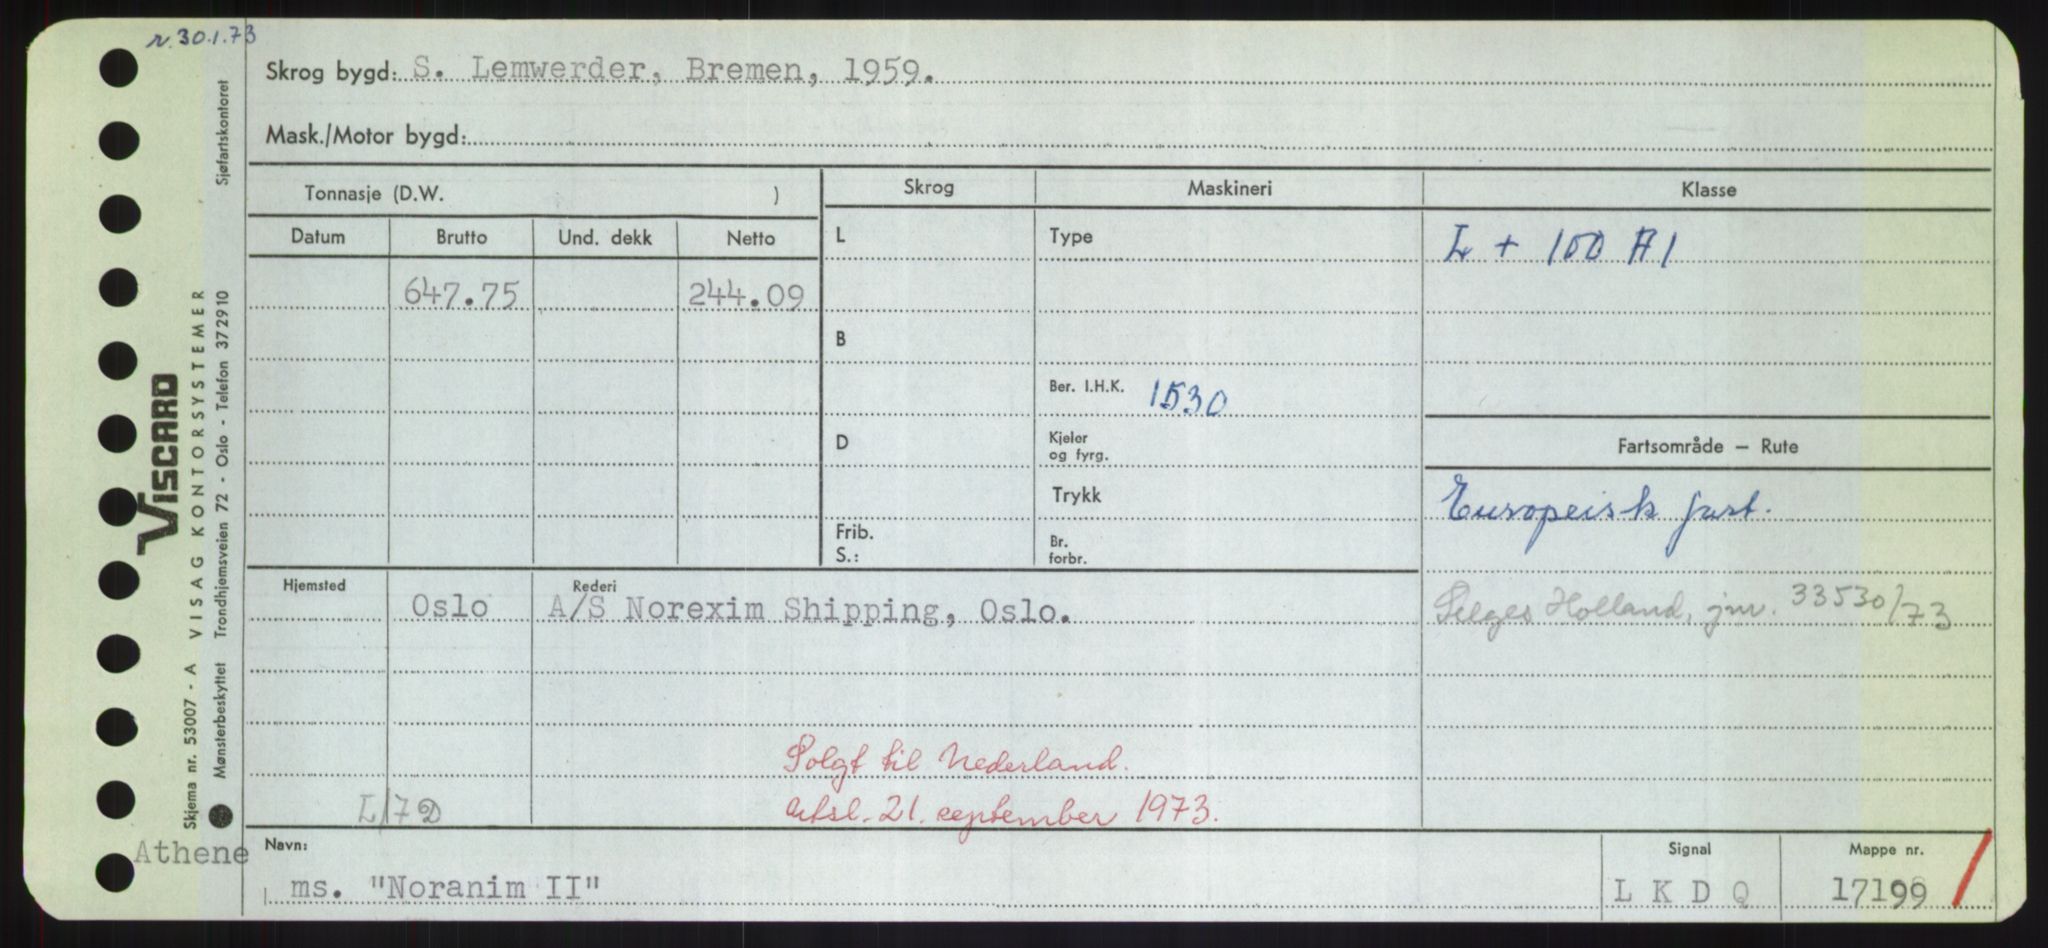 r. 30.1.73
Skrog bygd: S. Lemwerder, Bremen, 1959.
Mask./Motor bygd:
Tonnasje (D.W. )
Skrog Maskineri Klasse
Datum Brutto Und. dekk Netto
L Type L + 100 A1
647.75 244.09
B
Ber. I.H.K. 1530
D Kjeler og fyrg.
Fartsområde — Rute
Trykk
Europeisk fart.
Frib. S.:
Br. forbr.
Hjemsted Rederi
Oslo A/S Norexim Shipping, Oslo.
Selges Holland, jnr. 33530/73
Solgt til Nederland.
L/72
utsl. 21. september 1973.
Athene
Navn: Signal Mappe nr.
ms. "Noranim II" LKDQ 17199
VISCARD
VISAG KONTORSYSTEMER
Skjema nr. 53007 - A
Mønsterbeskyttet Trondhjemsveien 72 - Oslo - Telefon 372910 Sjøfartskontoret